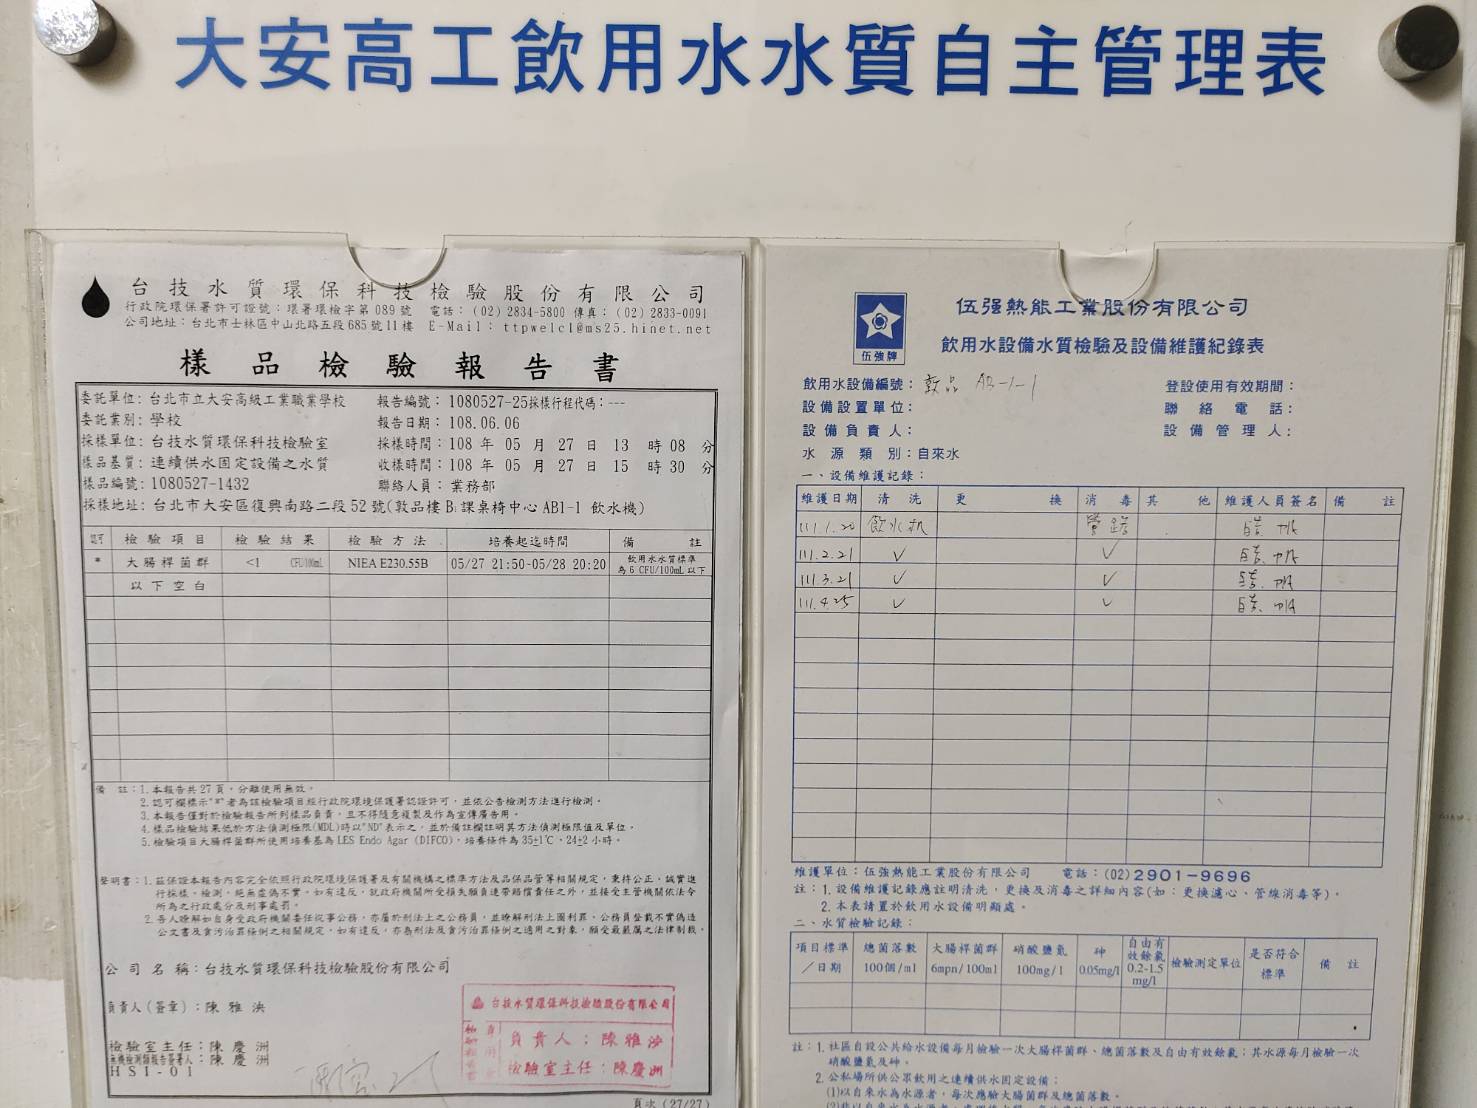 大安高工飲用水水質自主管理表
台技水質環保科技檢驗股份有限公司
行政院環保署許可證號：環署環檢字第089號 電話：(02) 2834-5800 傳真：(02) 2833-0091
公司地址：台北市士林區中山北路五段685號11樓 E-Mail：ttpwelcl@ms25.hinet.net
樣品檢驗報告書
委託單位：台北市立大安高級工業職業學校 報告編號：1080527-25採樣行程代碼：---
委託業別：學校 報告日期：108.06.06
採樣單位：台技水質環保科技檢驗室 採樣時間：108 年 05 月 27 日 13 時 08 分
樣品基質：連續供水固定設備之水質 收樣時間：108 年 05 月 27 日 15 時 30 分
樣品編號：1080527-1432 聯絡人員：業務部
採樣地址：台北市大安區復興南路二段52號(敦品樓B1課桌椅中心AB1-1 飲水機)
認可 檢驗項目 檢驗結果 檢驗方法 培養起迄時間 備註
* 大腸桿菌群 <1 CFU/100mL NIEA E230.55B 05/27 21:50-05/28 20:20 飲用水水質標準
為6 CFU/100mL以下
以下空白
備 註：1.本報告共27頁，分離使用無效。
2.認可欄標示"*"者為該檢驗項目經行政院環境保護署認證許可，並依公告檢測方法進行檢測。
3.本報告僅對於檢驗報告所列樣品負責，且不得隨意複製及作為宣傳廣告用。
4.樣品檢驗結果低於方法偵測極限(MDL)時以"ND"表示之，並於備註欄註明其方法偵測極限值及單位。
5.檢驗項目大腸桿菌群所使用培養基為LES Endo Agar (DIFCO)，培養條件為35±1℃、24±2小時。
聲明書：1.茲保證本報告內容完全依照行政院環境保護署及有關機構之標準方法及品保品管等相關規定，秉持公正、誠實進
行採樣、檢測。絕無虛偽不實，如有違反，就政府機關所受損失願負連帶賠償責任之外，並接受主管機關依法令
所為之行政處分及刑事處罰。
2.吾人瞭解如自身受政府機關委任從事公務，亦屬於刑法上之公務員，並瞭解刑法上圖利罪、公務員登載不實偽造
公文書及貪污治罪條例之相關規定，如有違反，亦為刑法及貪污治罪條例之適用之對象，願受最嚴厲之法律制裁。
公司名稱：台技水質環保科技檢驗股份有限公司
負責人(簽章)：陳雅泱
檢驗室主任：陳慶洲
無機檢測類報告簽署人：陳慶洲
HSI-01
台技水質環保科技檢驗股份有限公司
負責人：陳雅泱
檢驗室主任：陳慶洲
頁次 (27/27)
伍強牌
伍强熱能工業股份有限公司
飲用水設備水質檢驗及設備維護紀錄表
飲用水設備編號：敦品 AB-1-1 登設使用有效期間：
設備設置單位： 聯絡電話：
設備負責人： 設備管理人：
水源類別：自來水
一、設備維護記錄：
維護日期 清洗 更換 消毒 其他 維護人員簽名 備註
111.1.20 飲水机 管路
111.2.21 ✓ ✓
111.3.21 ✓ ✓
111.4.25 ✓ ✓
維護單位：伍強熱能工業股份有限公司 電話：(02)2901-9696
註：1.設備維護記錄應註明清洗，更換及消毒之詳細內容(如：更換濾心、管線消毒等)。
2.本表請置於飲用水設備明顯處。
二、水質檢驗記錄：
項目標準／日期 總菌落數 100個/ml 大腸桿菌群 6mpn/100ml 硝酸鹽氮 100mg/l 砷 0.05mg/l 自由有效餘氯 0.2-1.5 mg/l 檢驗測定單位 是否符合標準 備註
註：1.社區自設公共給水設備每月檢驗一次大腸桿菌群、總菌落數及自由有效餘氯；其水源每月檢驗一次
硝酸鹽氮及砷。
2.公私場所供公眾飲用之連續供水固定設備：
(1)以自來水為水源者，每次應驗大腸菌群及總菌落數。